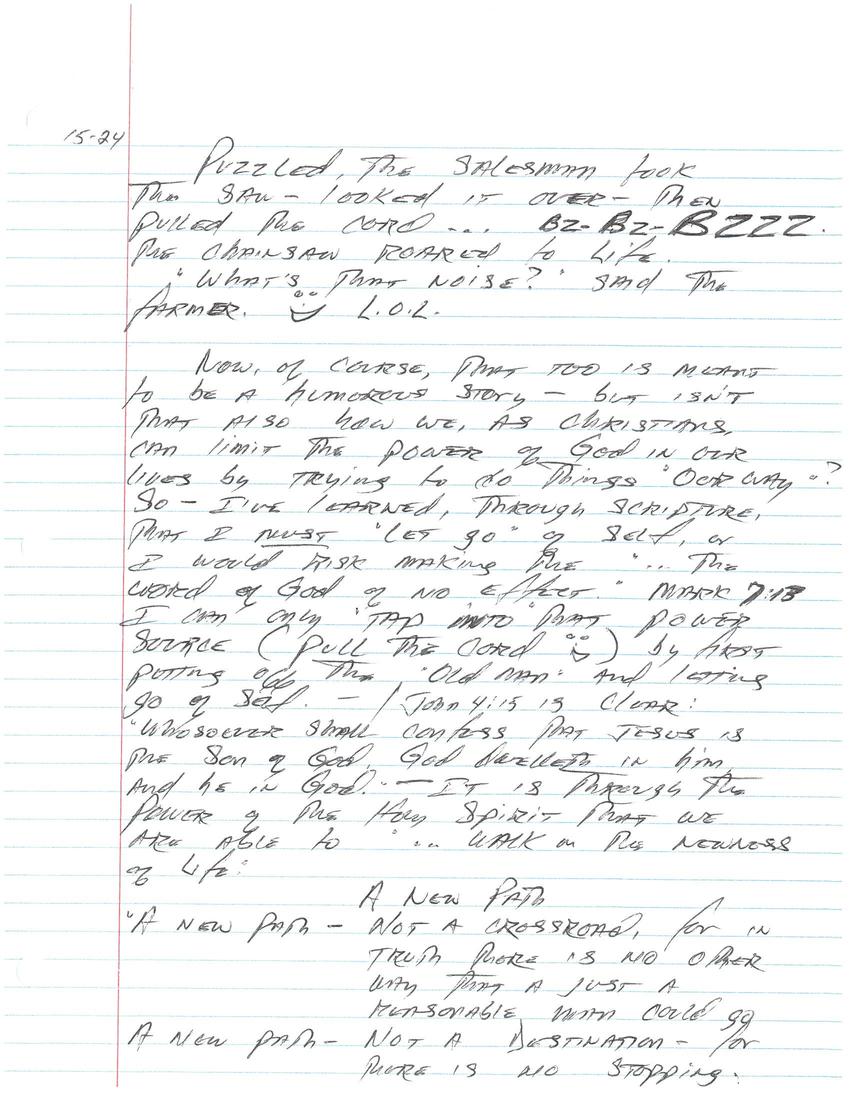 15-24
Puzzled, the salesman took
the saw - looked it over - then
pulled the cord ... Bz- Bz- BZZZ.
The chainsaw roared to life.
"What's that noise?" said the
farmer. L.O.L.
Now, of course, that too is meant
to be a humorous story - but isn't
that also how we, as Christians,
can limit the power of God in our
lives by trying to do things "our way"?
So - I've learned, through scripture,
that I must "let go" of self, or
I would risk making the "... the
word of God of no effect." Mark 7:13
I can only "tap into" that power
source (pull the cord) by first
putting off the "old man" and letting
go of self. - 1 John 4:15 is clear:
"Whosoever shall confess that Jesus is
the Son of God, God dwelleth in him,
and he in God." - It is through the
power of the Holy Spirit that we
are able to "... walk in the newness
of life."
A New Path
"A new path - Not a crossroad, for in
truth there is no other
way that a just a
reasonable man could go
A new path - Not a destination - for
there is no stopping.